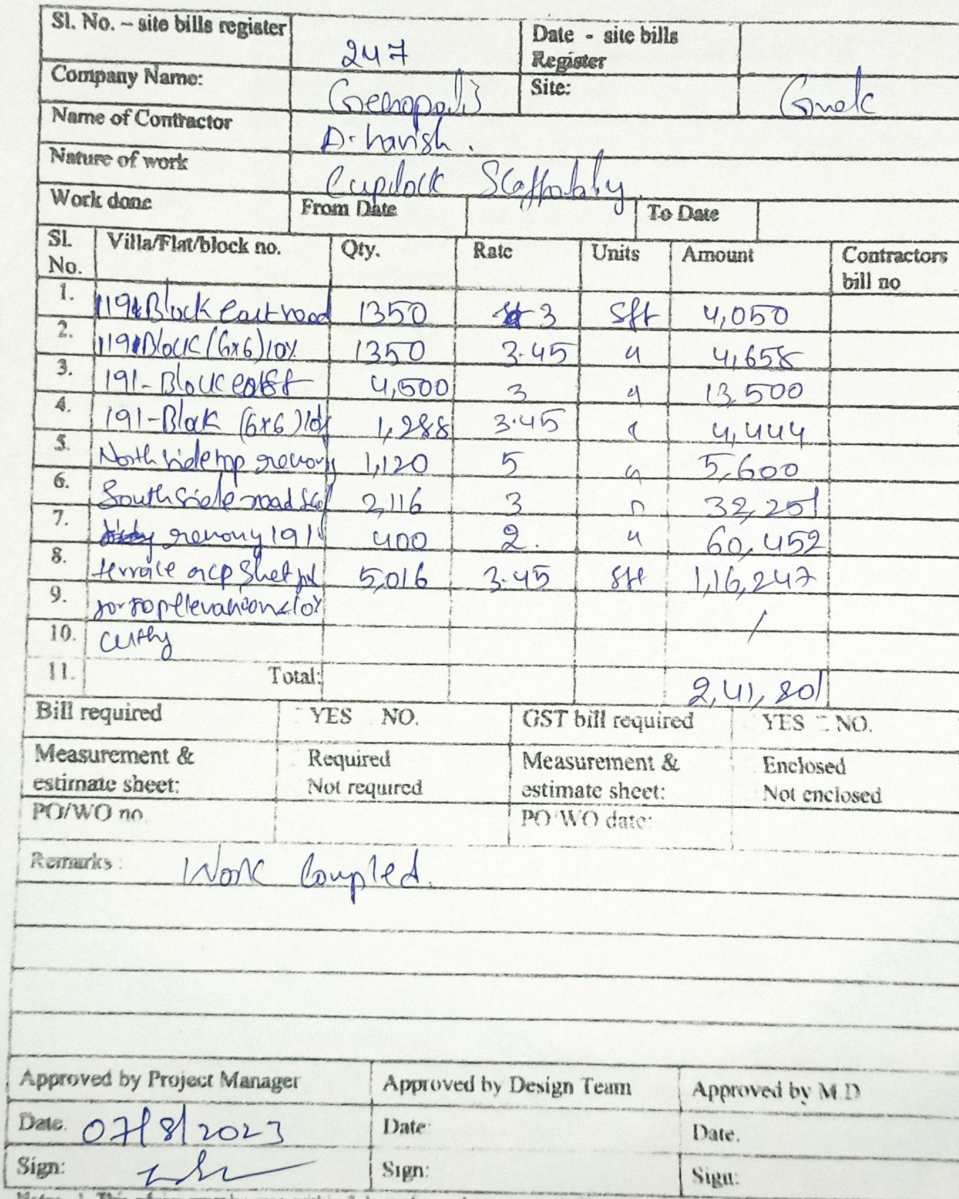 Sl. No. – site bills register 247 Date - site bills Register
Company Name: Greenopolis Site: Gmek
Name of Contractor D. harish.
Nature of work Cuplock Scaffolding.
Work done From Date To Date
Sl. No. Villa/Flat/block no. Qty. Rate Units Amount Contractors bill no
1. 1191 Block east road 1350 3 sft 4,050
2. 1191 Block (6x6) 10% 1350 3.45 " 4,658
3. 191-Block 4,500 3 " 13,500
4. 191-Block (6x6) 10% 1,288 3.45 " 4,444
5. North side top 1,120 5 " 5,600
6. South side road 2,116 3 " 32,251
7. 191 400 2. " 60,452
8. terrace acp Sheet 5,016 3.45 sft 1,16,247
9. /
10.
11. Total: 2,41,801
Bill required YES NO. GST bill required YES - NO.
Measurement & estimate sheet: Required Not required Measurement & estimate sheet: Enclosed Not enclosed
PO/WO no. PO/WO date:
Remarks: Work Coupled.
Approved by Project Manager Approved by Design Team Approved by M.D
Date. 07/8/2023 Date: Date.
Sign: Sign: Sign: